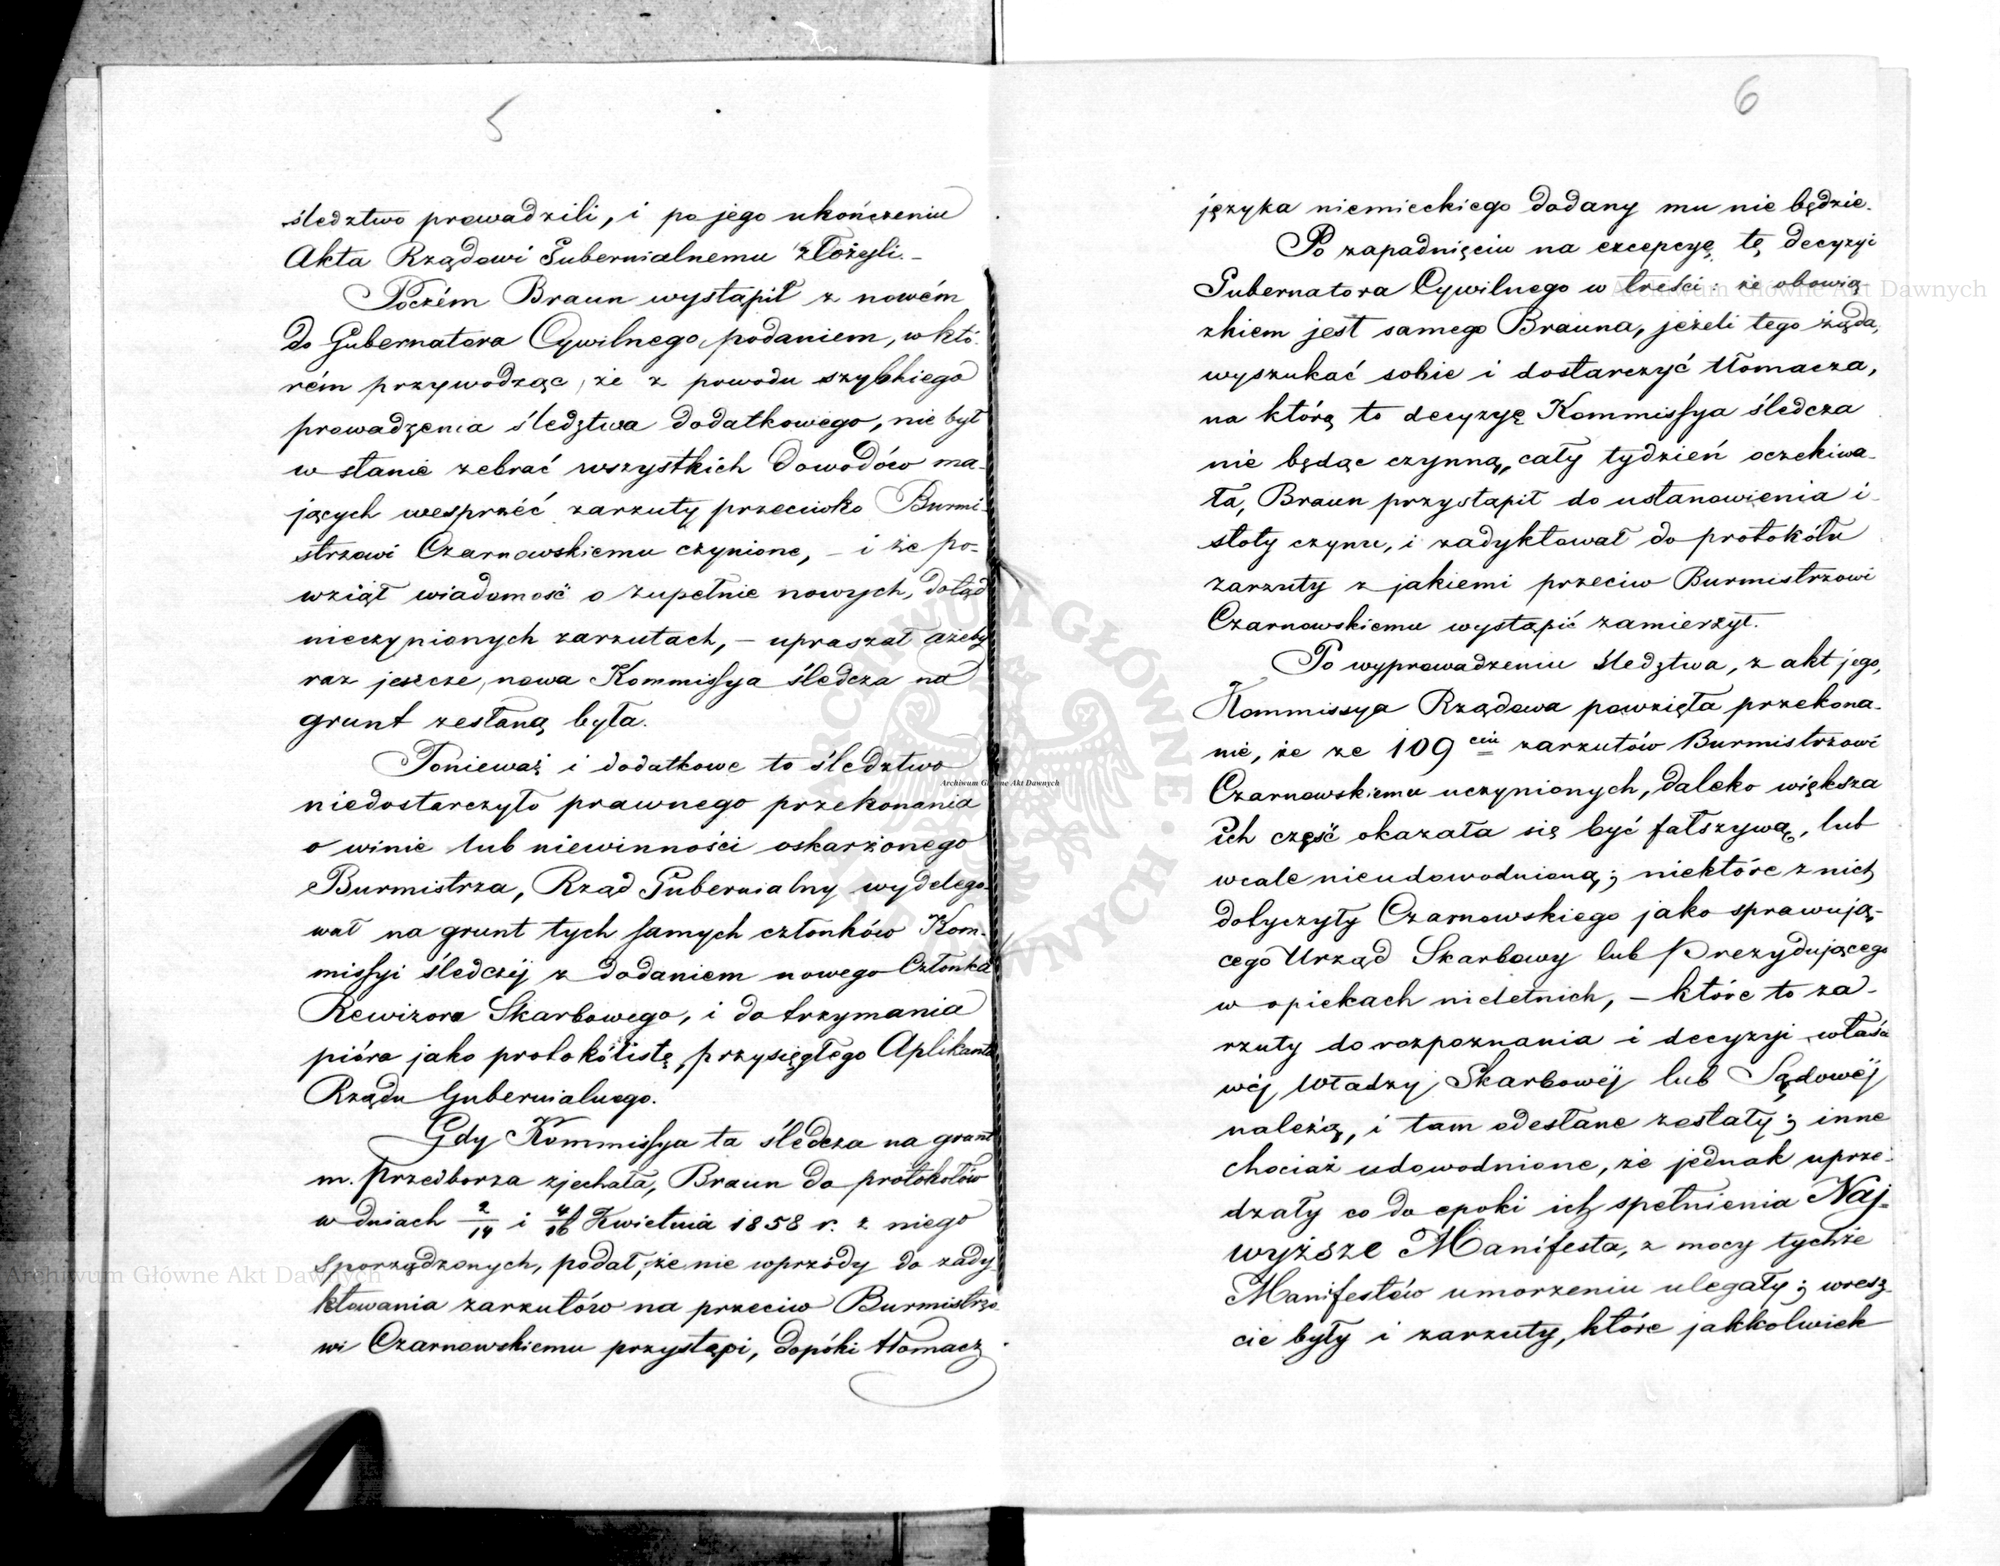 5
śledztwo prowadzili, i po jego ukończeniu
Akta Rządowi Gubernialnemu złożyli.–
Poczém Braun wystąpił z nowém
do Gubernatora Cywilnego podaniem, w któ-
rém przywodząc, że z powodu szybkiego
prowadzenia śledztwa dodatkowego, nie był
w stanie zebrać wszystkich dowodów ma-
jących wesprzéć zarzuty przeciwko Burmi-
strzowi Czarnowskiemu czynione, – i że po-
wziął wiadomość o zupełnie nowych, dotąd
nieczynionych zarzutach, – upraszał ażeby
raz jeszcze, nowa Kommissya śledcza na
grunt zesłaną była.
Ponieważ i dodatkowe to śledztwo
niedostarczyło prawnego przekonania
o winie lub niewinności oskarżonego
Burmistrza, Rząd Gubernialny wydelego-
wał na grunt tych samych członków Kom-
missyi śledczéj z dodaniem nowego Członka
Rewizora Skarbowego, i do trzymania
pióra jako protokólistę, przysięgłego Aplikanta
Rządu Gubernialnego.
Gdy Kommissya ta śledcza na grunt
m. Przedborza zjechała, Braun do protokołów
w dniach 2/14 i 4/16 Kwietnia 1858 r. z niego
sporządzonych, podał, że nie wprzódy do zady-
ktowania zarzutów na przeciw Burmistrzo-
wi Czarnowskiemu przystąpi, dopóki tłomacz
6
języka niemieckiego dodany mu nie będzie.
Po zapadnięciu na excepcyę tę decyzyi
Gubernatora Cywilnego w treści: że obowią
zkiem jest samego Brauna, jeżeli tego żąda,
wyszukać sobie i dostarczyć tłomacza,
na którą to decyzyę Kommissya śledcza
nie będąc czynną, cały tydzień oczekiwa-
ła, Braun przystąpił do ustanowienia i-
stoty czynu, i zadyktował do protokółu
zarzuty z jakiemi przeciw Burmistrzowi
Czarnowskiemu wystąpić zamierzył.
Po wyprowadzeniu śledztwa, z akt jego,
Kommissya Rządowa powzięła przekona-
nie, że ze 109 ciu zarzutów Burmistrzowi
Czarnowskiemu uczynionych, daleko większa
ich część okazała się być fałszywą, lub
wcale nieudowodnioną; niektóre z nich
dotyczyły Czarnowskiego jako sprawują-
cego Urząd Skarbowy lub Prezydującego
w opiekach nieletnich, – które to za-
rzuty do rozpoznania i decyzyi właści
wéj Władzy Skarbowéj lub Sądowéj
należą, i tam odesłane zostały; inne
chociaż udowodnione, że jednak uprze-
dzały co do epoki ich spełnienia Naj-
wyższe Manifesta, z mocy tychże
Manifestów umorzeniu ulegały; wresz-
cie były i zarzuty, które jakkolwiek
Archiwum Główne Akt Dawnych
Archiwum Główne Akt Dawnych
Archiwum Główne Akt Dawnych